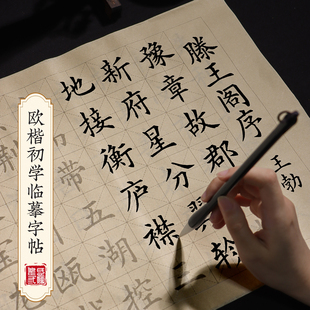 欧楷初学临摹字帖
滕王阁序
王勃
豫章故郡
新府星分翼轸
地接衡庐襟三
带五湖控
瓯